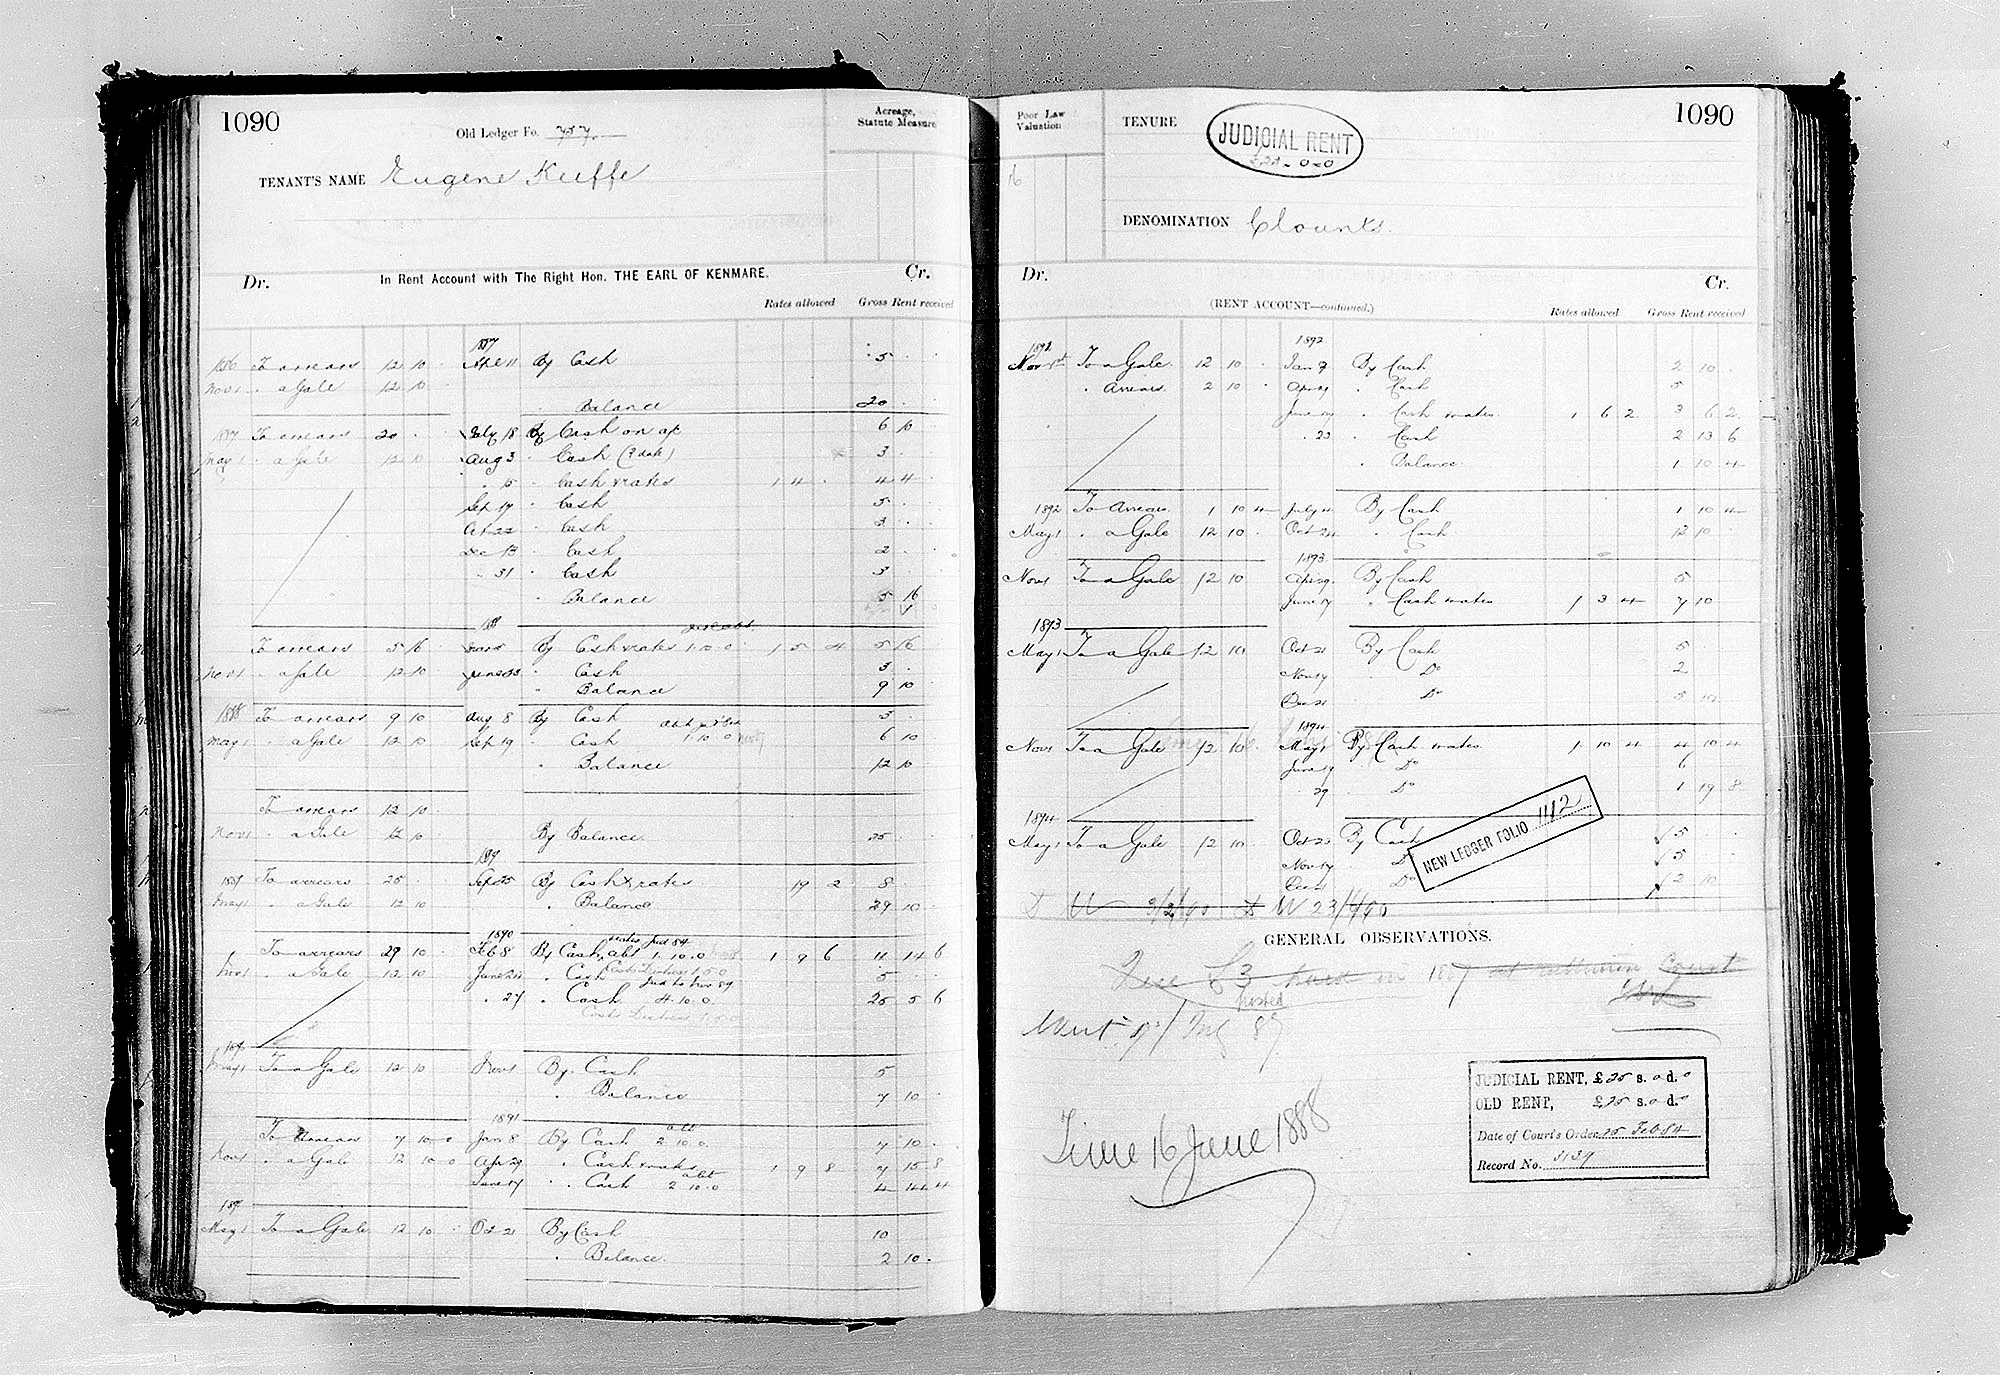 1090
Old Ledger Fo. 757
Acreage, Statute Measure
TENANT'S NAME Eugene Keeffe
In Rent Account with The Right Hon. THE EARL OF KENMARE.
Dr. Cr.
Rates allowed Gross Rent received
1887
1886 To arrears 12 10 Apl 11 By Cash 5
Nov 1 " a Gale 12 10
" Balance 20
1887 To arrears 20 July 18 By Cash on a/c 6 10
May 1 " a Gale 12 10 Aug 3 " Cash (? date) 3
" 15 " Cash & rates 1 4 4 4
Sep 19 " Cash 5
Oct 22 " Cash 3
Dec 13 " Cash 2
" 31 " Cash 3
" Balance 5 16
188
To arrears 5 16 By Cash & rates 1.10.0 1 5 4 5 16
Nov 1 " a Gale 12 10 June " Cash 3
" Balance 9 10
1888 To arrears 9 10 Aug 8 By Cash 3
May 1 " a Gale 12 10 Sep 19 " Cash 1.10.0 6 10
" Balance 12 10
To arrears 12 10
Nov 1 " a Gale 12 10 By Balance 25
1889
1889 To arrears 25 Sep 25 By Cash & rates 19 2 8
May 1 " a Gale 12 10 " Balance 29 10
1890
To arrears 29 10 Feb 8 By Cash, abt 1.10.0 1 9 6 4 14 6
Nov 1 " a Gale 12 10 June 24 " Cash 5
" 27 " Cash 4.10.0 25 5 6
1890
May 1 To a Gale 12 10 Nov 1 By Cash 5
" Balance 7 10
1891
To Arrears 7 10 0 Jan 8 By Cash abt 2 10.0 7 10
Nov 1 " a Gale 12 10 0 Apr 29 " Cash & rates 1 9 8 7 15 8
June 17 " Cash abt 2 10.0 4 14 4
1891
May 1 To a Gale 12 10 Oct 21 By Cash 10
" Balance 2 10
Poor Law Valuation
16
TENURE
JUDICIAL RENT
£25-0-0
1090
DENOMINATION Clounts
Dr. (RENT ACCOUNT—continued.) Cr.
Rates allowed Gross Rent received
1892
Nov 1st To a Gale 12 10 Jan 9 By Cash 2 10
" Arrears 2 10 Apr 29 " Cash 5
June 17 " Cash & rates 1 6 2 3 6 2
" 23 " Cash 2 13 6
" Balance 1 10 4
1892 To Arrears 1 10 4 July 4 By Cash 1 10 4
May 1 " a Gale 12 10 Oct 24 " Cash 12 10
1893
Nov 1 To a Gale 12 10 Apr 29 By Cash 5
June 17 " Cash & rates 1 3 4 7 10
1893
May 1 To a Gale 12 10 Oct 21 By Cash 5
Nov 17 " Do 2
Dec 21 " Do 5 10
1894
Nov 1 To a Gale 12 10 May 1 By Cash & rates 1 10 4 4 10 4
June 19 " Do 6
" 29 " Do 1 19 8
1894
May 1 To a Gale 12 10 Oct 23 By Cash 5
Nov 17 " Do 5
Dec 21 " Do 2 10
NEW LEDGER FOLIO 1142
W 23/4/90
GENERAL OBSERVATIONS.
posted
Time 16 June 1888
JUDICIAL RENT, £25 s. 0 d. 0
OLD RENT, £25 s. 0 d. 0
Date of Court's Order 25 Feb 84
Record No. 3139